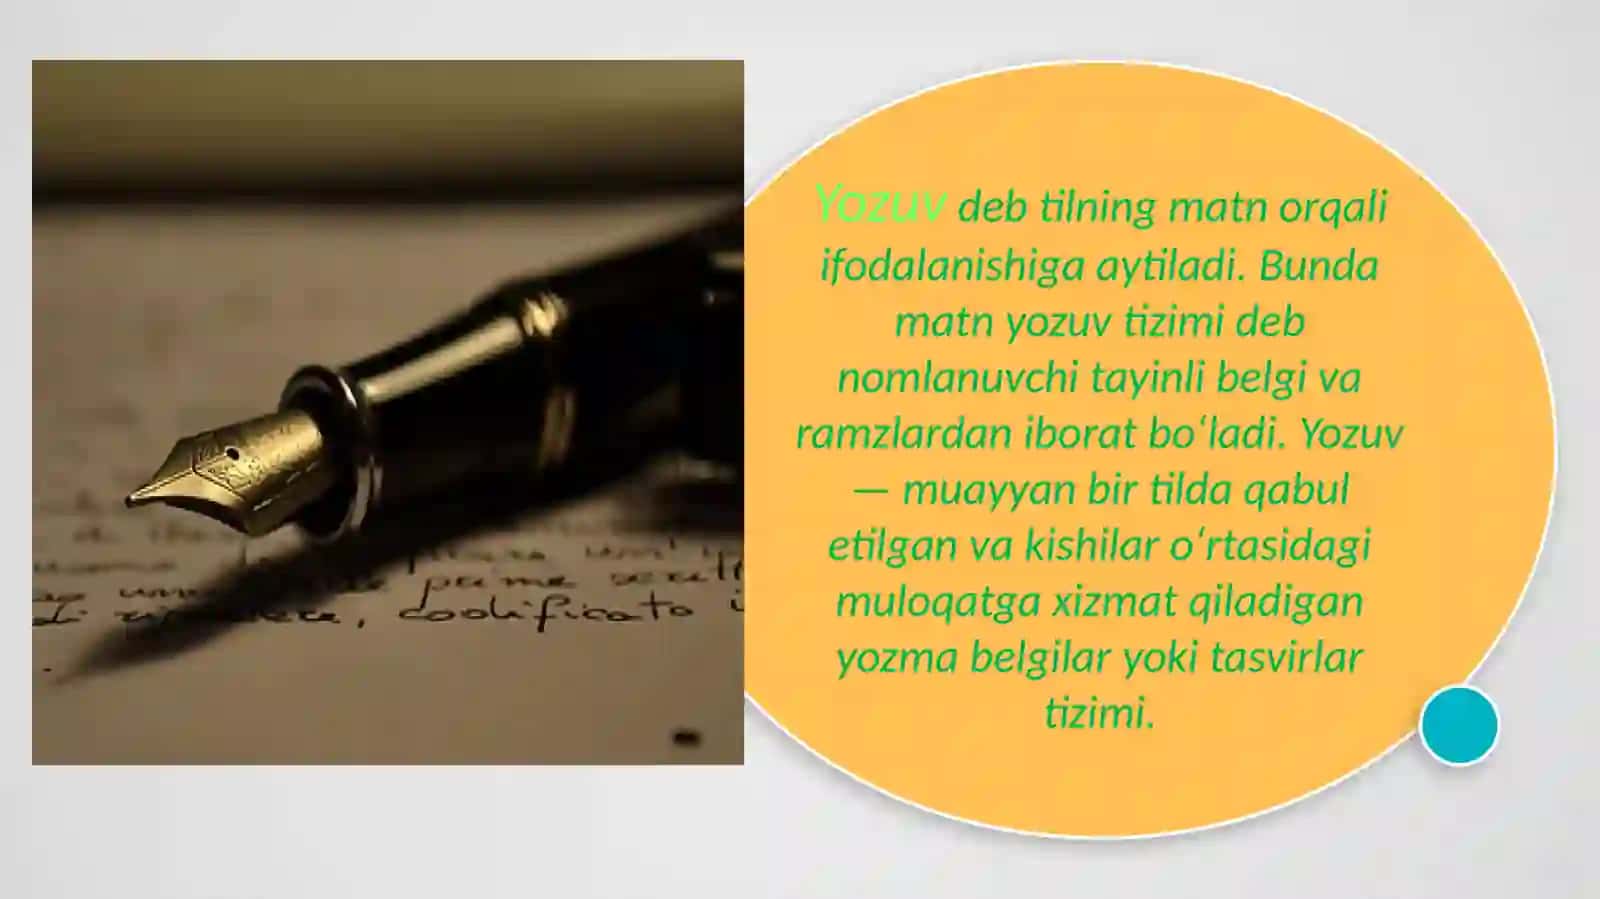 Yozuv deb tilning matn orqali
ifodalanishiga aytiladi. Bunda
matn yozuv tizimi deb
nomlanuvchi tayinli belgi va
ramzlardan iborat bo‘ladi. Yozuv
— muayyan bir tilda qabul
etilgan va kishilar o‘rtasidagi
muloqatga xizmat qiladigan
yozma belgilar yoki tasvirlar
tizimi.
prime
codificato